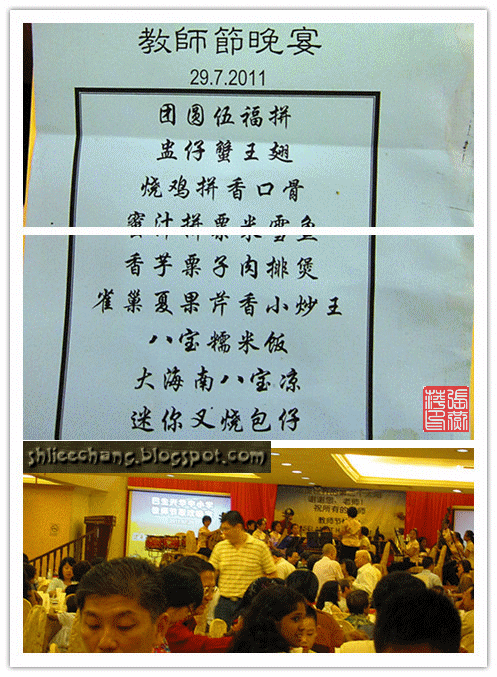 教師節晚宴
29.7.2011
团圆伍福拼
盅仔蟹王翅
烧鸡拼香口骨
蜜汁拼粟米雪鱼
香芋栗子肉排煲
雀巢夏果芹香小炒王
八宝糯米饭
大海南八宝凉
迷你叉烧包仔
shlieechang.blogspot.com
谢谢您，老师！
祝所有的 师
教师节